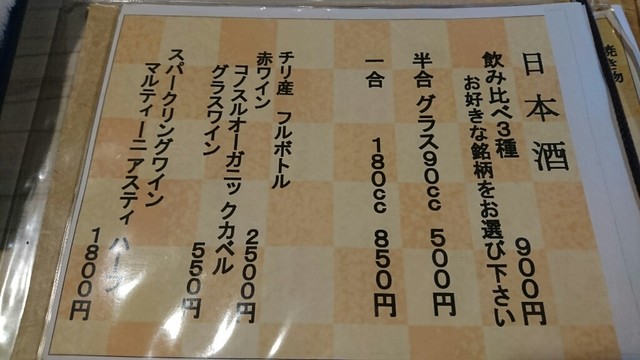 日本酒
飲み比べ3種 900円
お好きな銘柄をお選び下さい
半合 グラス90cc 500円
一合 180cc 850円
チリ産 フルボトル
赤ワイン
コノスルオーガニックカベル 2500円
グラスワイン 550円
スパークリングワイン
マルティーニ アスティ ハーフ 1800円
焼き物